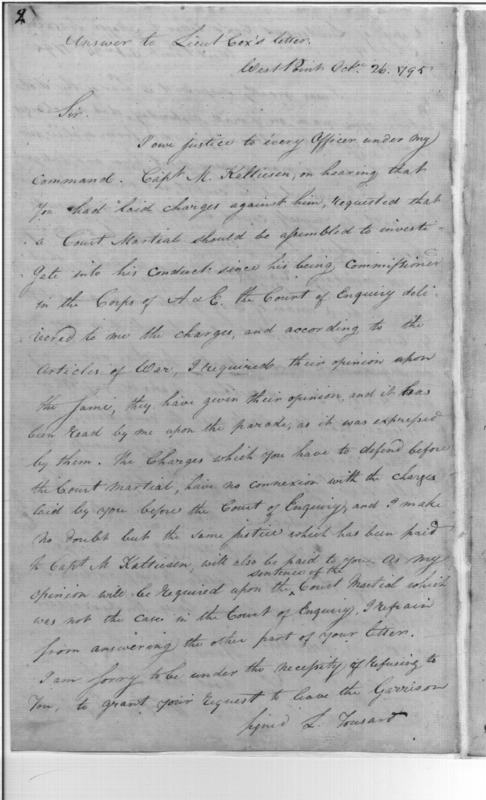 2
Answer to Lieut Cox's letter.
West Point Oct. 26. 1795
Sir.
I owe justice to every Officer under my
command. Capt M. Kaltiesen, on hearing that
You had laid charges against him, requested that
a Court Martial should be assembled to investi-
gate into his conduct since his being Commissioned
in the Corps of A & E. the Court of Enquiry deli-
vered to me the charges, and according to the
Articles of War, I required their opinion upon
the same, they have given their opinion, and it has
been read by me upon the parade, as it was expressed
by them. The Charges which you have to defend before
the Court Martial, have no connexion with the charges
laid by you before the Court of Enquiry, and I make
no doubt but the same justice which has been paid
to Capt M Kaltiesen, will also be paid to you. As my
opinion will be required upon the sentence of the Court Martial which
was not the case in the Court of Enquiry, I refrain
from answering the other part of your letter.
I am sorry to be under the necessity of refusing to
You, to grant your request to leave the Garrison
Signed L. Tousard